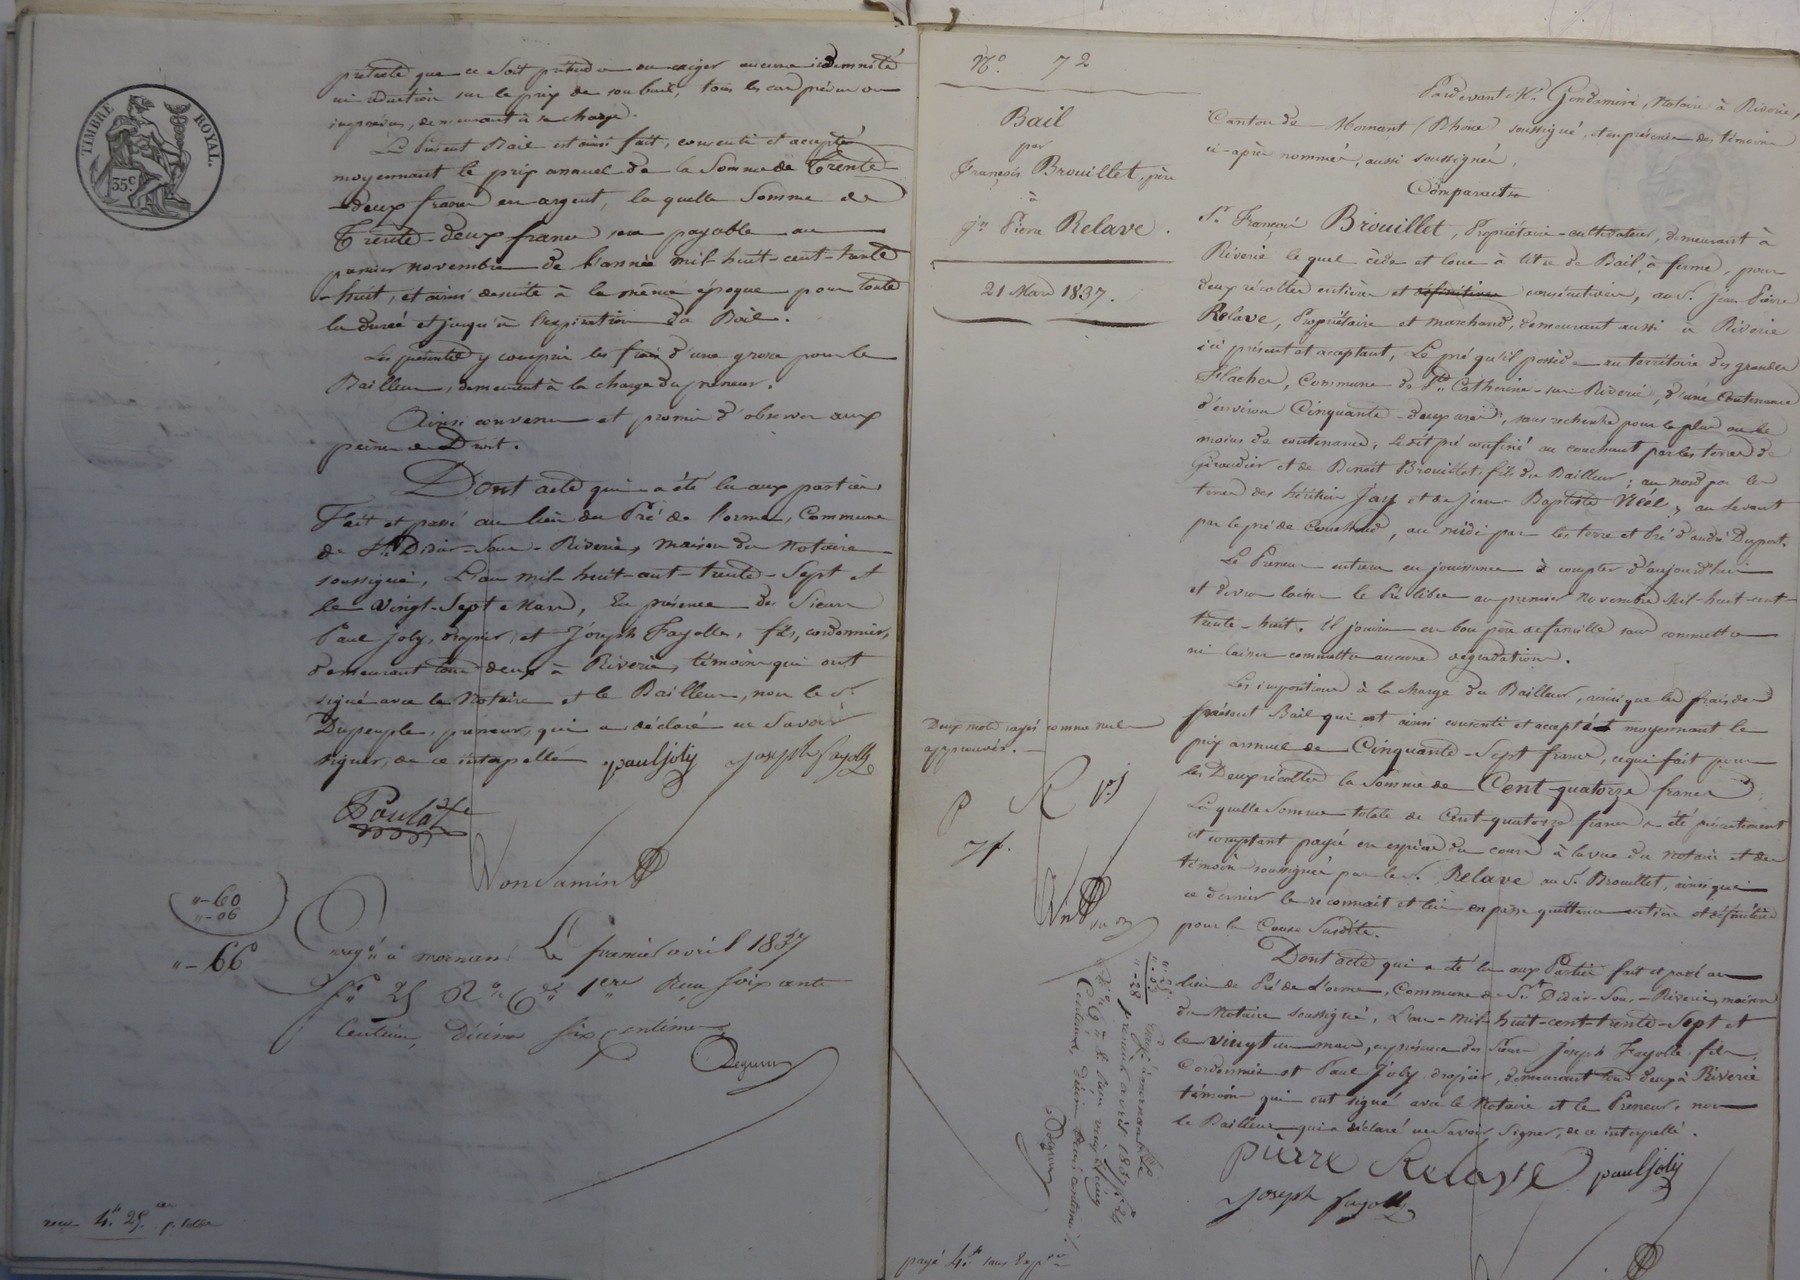 TIMBRE ROYAL.
35c
prétexte que ce soit prétendre ou exiger aucune indemnité
ni réduction sur le prix de son bail, tous les cas prévus ou
imprévus, demeurant à sa charge.
Le Présent Bail est ainsi fait, consenti et accepté
moyennant le prix annuel de la Somme de Trente
-deux francs en argent, la quelle Somme de
Trente-deux francs sera payable au
premier novembre de l'année mil-huit-cent-trente
-huit, et ainsi de suite à la même époque pour toute
la durée et jusqu'à l'expiration du Bail.
Les présentes y compris les frais d'une grosse pour le
Bailleur, demeurent à la charge du preneur.
Ainsi convenu et promis d'observer aux
peines de Droit.
Dont acte qui a été lu aux parties
Fait et passé au lieu du Pré de l'orme, Commune
de St. Didier-Sous-Riverie, maison du Notaire
soussigné, L'an mil-huit-cent-trente-Sept et
le vingt-Sept Mars, En présence des Sieurs
Paul Joly, drapier, et Joseph Fayolle, fils, cordonnier,
demeurant tous deux à Riverie, témoins qui ont
signé avec le Notaire et le Bailleur, non le sr.
Dupeuple, preneur, qui a déclaré ne Savoir
signer, de ce interpellé
paul joly joseph fayolle
Poulat
Gondamin
"-60
"-06
"-66
Le premier avril 1837
fo 25 Ro Ces 1ere Reçu soixante
Centimes, décime six Centimes
reçu 4f 25
No. 72
Bail
par
François Brouillet, père
à
jn Pierre Relave.
21 Mars 1837.
Deux mots rayés comme nuls
approuvés.
P R P.j
J f.
"-25
"-03
"-28
Enregé à mornant le
premier avril 1837 fo 25
Ro Ces 8 reçu vingt cinq
Centimes, décime trois centimes
payé 4f. sans
Pardevant Me. Gondamin, Notaire à Riverie,
Canton de Mornant (Rhône) soussigné, et en présence des témoins
ci-après nommés, aussi soussignés,
Comparaître
Sr. François Brouillet, Propriétaire-cultivateur, demeurant à
Riverie le quel cède et loue à titre de Bail, à ferme, pour
deux récoltes entières et définitives consécutives, au sr. Jean Pierre
Relave, Propriétaire et marchand, demeurant aussi à Riverie
ici présent et acceptant, Le pré qu'il possède au territoire des grandes
Flaches, Commune de Ste Catherine-sur-Riverie, d'une Contenance
d'environ Cinquante-deux ares, sans recherche pour le plus ou le
moins de contenance, ledit pré confiné au couchant par les terres de
Giraudier et de Benoit Brouillet, fils du Bailleur; au nord par les
terres des héritiers Jay et de Jean Baptiste Néel, au levant
par le pré de Couchoud, au midi par les terre et Pré d'andré Dupont.
Le Preneur entrera en jouissance à compter d'aujourd'hui
et devra laisser le Pré libre au premier Novembre Mil-huit-cent-
trente-huit. Il jouira en bon père de famille sans commettre
ni laisser commettre aucune dégradation.
Les impositions à la charge du Bailleur, ainsi que les frais du
présent Bail qui est ainsi consenti et accepté moyennant le
prix annuel de Cinquante-Sept francs, ce qui fait pour
les Deux récoltes la Somme de Cent-quatorze francs
La quelle Somme totale de Cent-quatorze francs a été présentement
et comptant payée en espèces du cours à la vue du Notaire et des
témoins soussignés par le sr. Relave au Sr. Brouillet, ainsi que
ce dernier le reconnait et lui en passe quittance entière et définitive
pour la Cause Susdite.
Dont acte qui a été lu aux Parties fait et passé au
lieu de Pré de l'orme, Commune de St. Didier-Sous-Riverie, maison
du Notaire soussigné, L'an-mil-huit-cent-trente-Sept et
le vingt un mars, en présence des Sieurs Joseph Fayolle fils,
Cordonnier et Paul Joly drapier, demeurant tous deux à Riverie
témoins qui ont signé avec le Notaire et le Preneur, non
le Bailleur qui a déclaré ne Savoir Signer, de ce interpellé.
pierre Relave paul joly
joseph fayolle